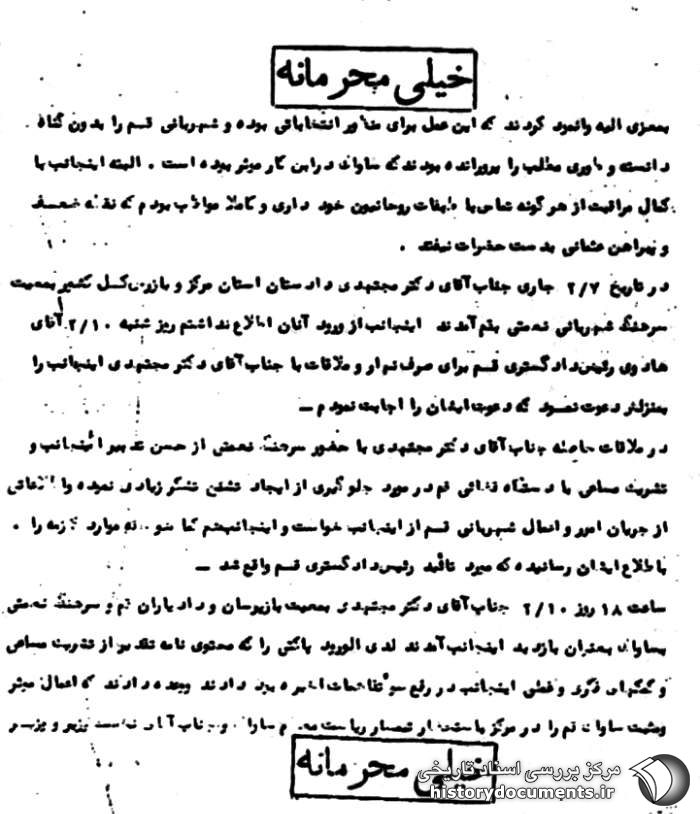 خیلی محرمانه
بمعزی الیه وانمود کردند که این عمل برای منظور انتخاباتی بوده و شهربانی قم را بدون گناه
دانسته و طوری مطلب را پرورانده بودند که ساواک در این کار موثر بوده است . البته اینجانب با
کمال مراقبت از هر گونه تماس با طبقات روحانیون خود داری و کاملا مواظب بودم که نقطه ضعف
و پیراهن عثمانی بدست حضرات نیفتد .
در تاریخ ۲/۷ جاری جناب آقای دکتر مجتهدی دادستان استان مرکز و بازرس کل کشور بمعیت
سرهنگ شهربانی نعمتی بقم آمدند اینجانب از ورود آنان اطلاع نداشتم روز شنبه ۲/۱۰ آقای
هادوی رئیس دادگستری قم برای صرف نهار و ملاقات با جناب آقای دکتر مجتهدی اینجانب را
بمنزلش دعوت نمود که دعوت ایشان را اجابت نمودم ــ
در ملاقات حاصله جناب آقای دکتر مجتهدی با حضور سرهنگ نعمتی از حسن تدبیر اینجانب و
تشریک مساعی با دستگاه قضائی قم در مورد جلوگیری از ایجاد تشنج تشکر زیادی نموده و
از جریان امور و اعمال شهربانی قم از اینجانب خواست و اینجانب هم کما هو حقه موارد لازمه را .
باطلاع ایشان رسانیده که مورد تائید رئیس دادگستری قم واقع شد ــ
ساعت ۱۸ روز ۲/۱۰ جناب آقای دکتر مجتهدی بمعیت بازپرسان و دادیاران قم و سرهنگ نعمتی
بساواک بعنوان بازدید اینجانب آمدند لدی الورود پاکتی را که محتوی نامه تقدیر از تشریک مساعی
و کمکهای فکری و عملی اینجانب در رفع سوء تفاهمات اخیره بود دادند و وعده دادند که اعمال موثر
و مثبت ساواک قم را در مرکز باستحضار تیمسار ریاست ساواک و جناب آقای نخست وزیر و وزیر
خیلی محرمانه
مرکز بررسی اسناد تاریخی
historydocuments.ir